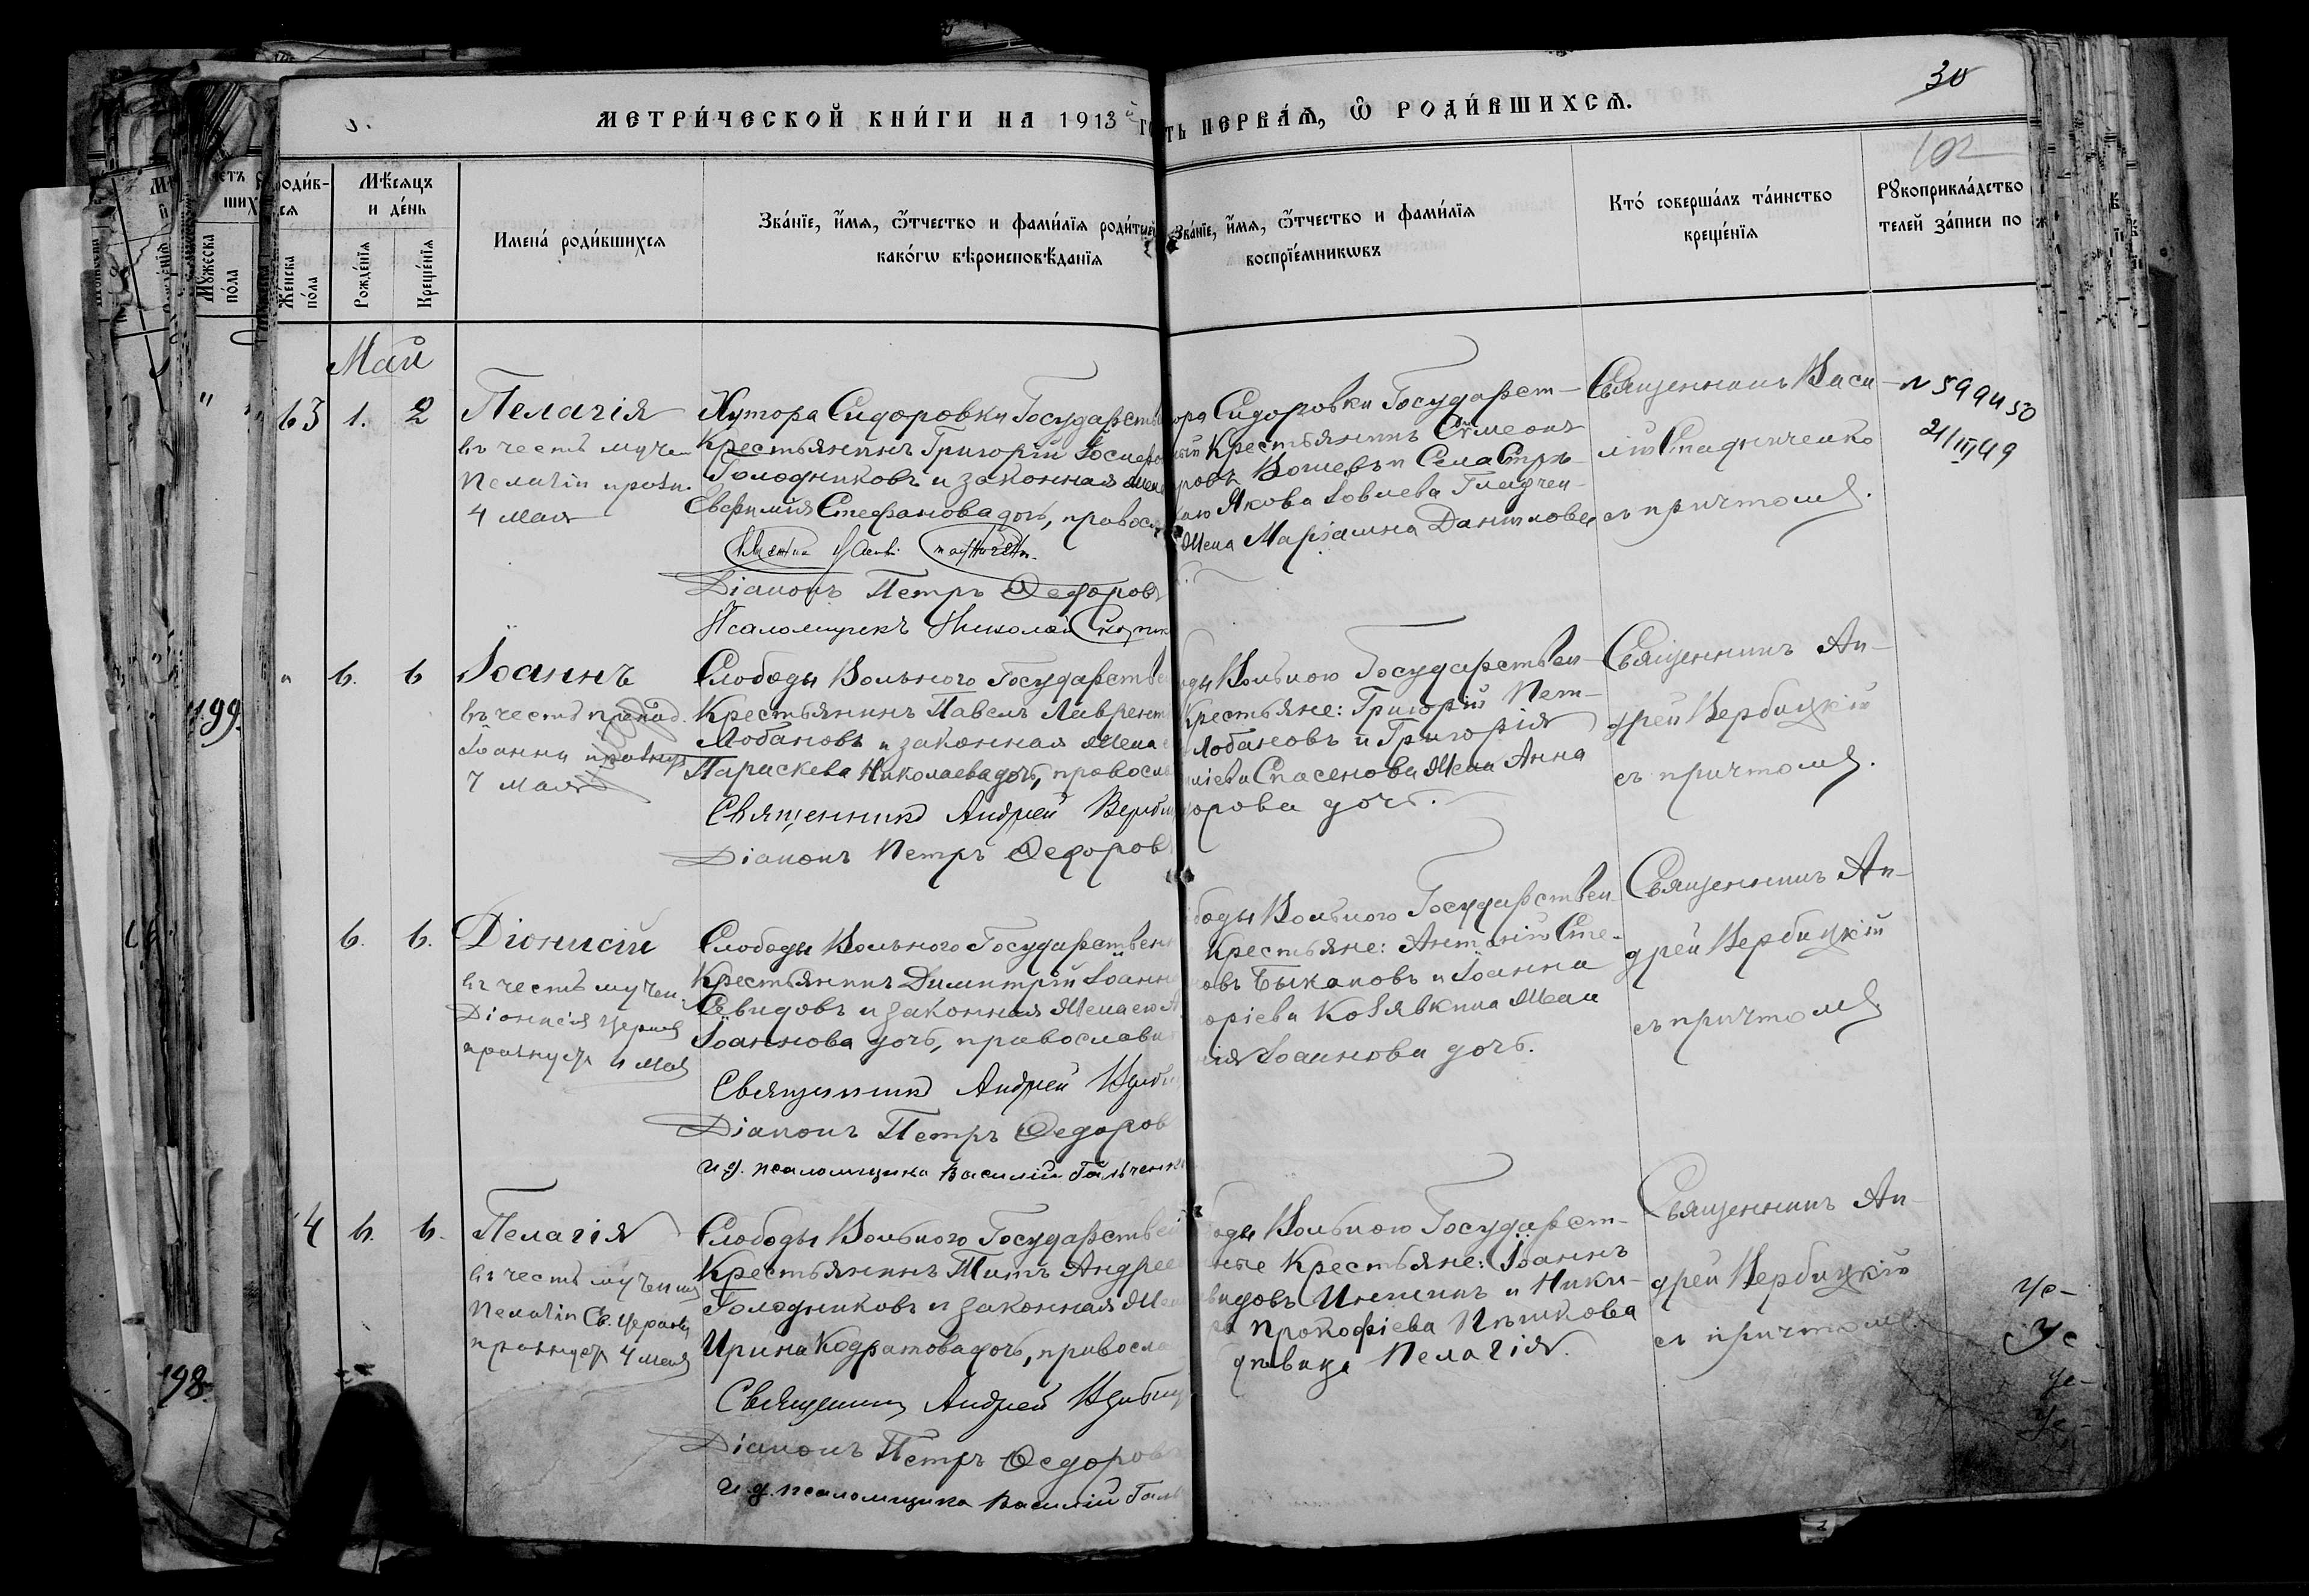 МЕТРИ́ЧЕСКОЙ КНИ́ГИ НА 1913й
ТЬ ПЕРВА́Я, Ѽ РОДИ́ВШИХСЯ.
30
102
роди́в-
ся
Мѣ́сяцъ
и де́нь
Мꙋ́жеска по́ла
Же́нска по́ла
Рожде́нїя
Креще́нїя
Имена̀ роди́вшихся
Зва́нїе, и҆́мя, ѻ҆́тчество и фами́лїя роди́телей
како́гѡ вѣроисповѣ́данїя
Зва́нїе, и҆́мя, ѻ҆́тчество и фами́лїя
воспрїе́мникѡвъ
Кто̀ соверша́лъ та́инство
креще́нїя
Рꙋкоприкла́дство
телей за́писи по
Май
63 1. 2
Пелагія
въ честь мучен.
Пелагіи празн.
4 мая
Хутора Сидоровки Государств
Крестьянинъ Григорій Іосифов
Голодниковъ и законная жена
Евфимія Стефанова дочь, правосл
Діаконъ Петръ Федоровъ
Псаломщикъ Николай
Сидоровки Государст-
Крестьянинъ Сѵмеонъ
Села Стрѣ-
Якова Іовлева Гладчен-
жена Маріамна Данилова
Священникъ Васи-
лій Стадниченко
съ причтомъ.
N 599450
21/III 49
6. 6
Іоаннъ
въ честь препод.
Іоанна празнуе
7 мая
Слободы Вольного Государствен
Крестьянинъ Павелъ Лаврент
Лобановъ и законная жена е
Параскева Николаева дочь, правосла
Священникъ Андрей Верби
Діаконъ Петръ Федоровъ
ды Вольного Государствен-
Крестьяне: Григорій Пет-
Лобановъ и Григорія
Спасенова жена Анна
дорова дочь.
Священникъ Ан-
дрей Вербицкій
съ причтомъ.
199
6. 6.
Діонисій
въ честь мучен.
Діонисія церковь
празнуетъ 4 мая
Слободы Вольного Государствен
Крестьянинъ Димитрій Іоанно
Севидовъ и законная жена его А
Іоаннова дочь, православн
Священникъ Андрей Верби
Діаконъ Петръ Федоров
и д. псаломщика Василій Гальченко
боды Вольного Государствен
Крестьяне: Антоній Сте-
новъ Быкановъ и Іоанна
горіева Козявкина жена
Іоаннова дочь.
Священникъ Ан-
дрей Вербицкій
съ причтомъ.
4 6. 6.
Пелагія
въ честь мученицы
Пелагіи Св. церковь
празнуетъ 4 мая
Слободы Вольного Государствен
Крестьянинъ Титъ Андрее
Голодниковъ и законная жен
Ирина Кодратова дочь, правосла
Священникъ Андрей Вербиц
Діаконъ Петръ Федоров
и. д. псаломщика Василій Галь
оды Вольного Государст-
ные Крестьяне: Іоаннъ
и Ники-
Прокофіева Пѣшкова
дѣвица Пелагія.
Священникъ Ан-
дрей Вербицкій
съ причтомъ.
198